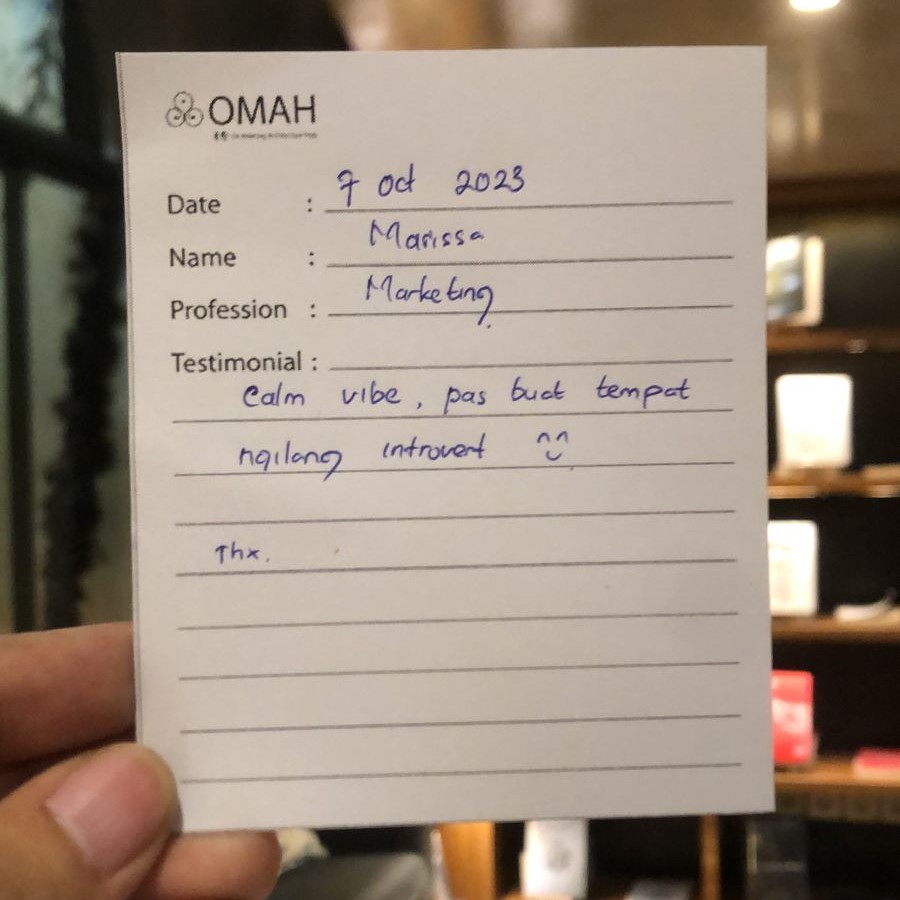 OMAH
Date : 7 Oct 2023
Name : Marissa
Profession : Marketing
Testimonial :
Calm vibe, pas buat tempat
ngilang introvert
Thx.